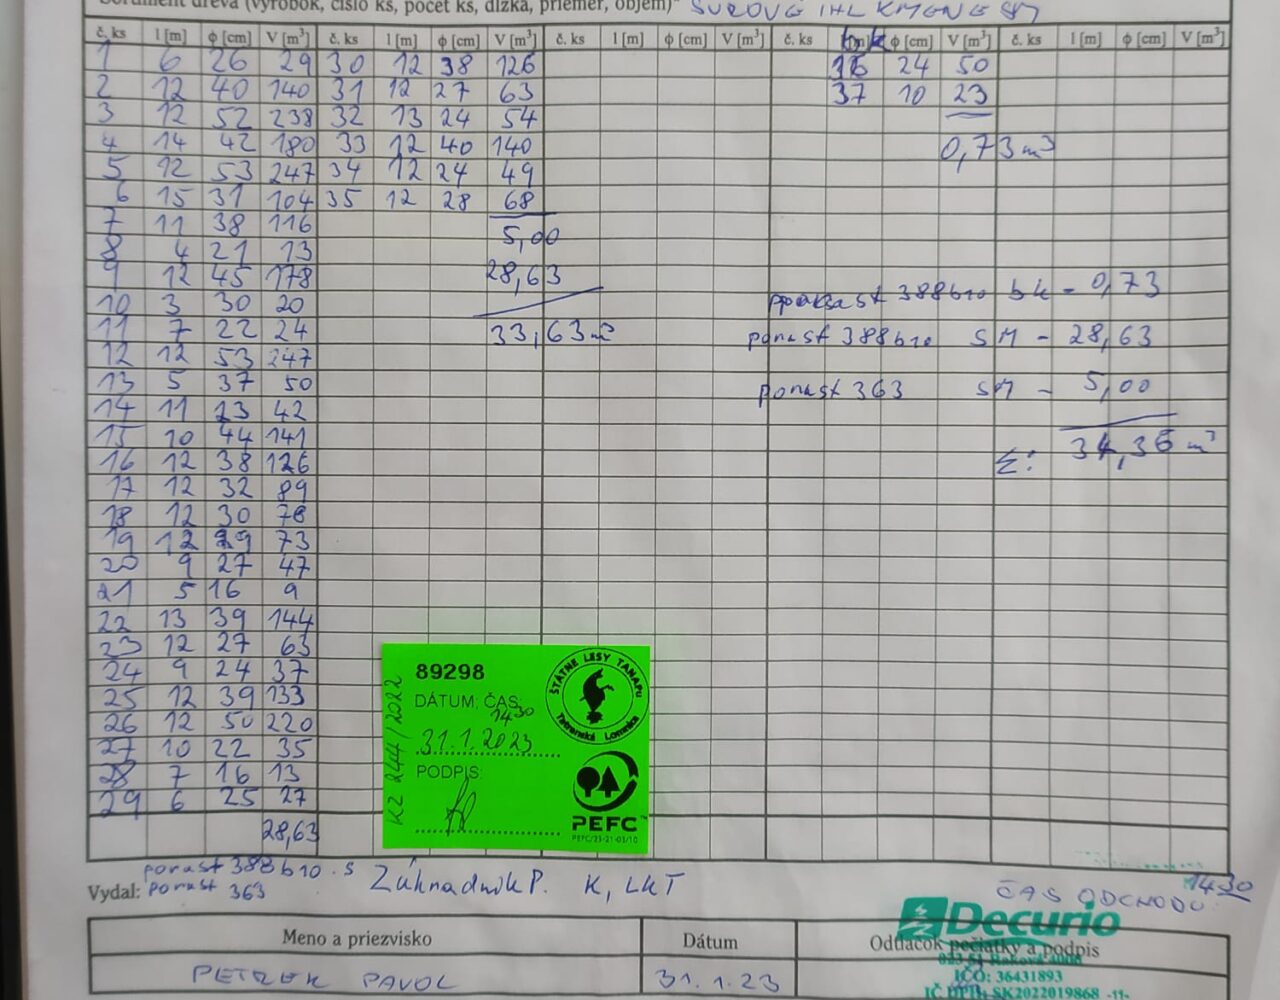 Sortiment dreva (výrobok, číslo ks, počet ks, dĺžka, priemer, objem)* SUROVÉ IHL KMENE SM
č. ks l [m] ϕ [cm] V [m³] č. ks l [m] ϕ [cm] V [m³] č. ks l [m] ϕ [cm] V [m³] č. ks ϕ [cm] V [m³] č. ks l [m] ϕ [cm] V [m³]
1 6 26 29 30 12 38 126 24 50
2 12 40 140 31 12 27 63 37 10 23
3 12 52 238 32 13 24 54
4 14 42 180 33 12 40 140 0,73 m³
5 12 53 247 34 12 24 49
6 15 31 104 35 12 28 68
7 11 38 116 5,00
8 4 21 13
9 12 45 178 28,63
10 3 30 20
11 7 22 24 33,63 m³
12 12 53 247
13 5 37 50
14 11 23 42
15 10 44 141
16 12 38 126
17 12 32 89
18 12 30 78
19 12 29 73
20 9 27 47
21 5 16 9
22 13 39 144
23 12 27 63
24 9 24 37
25 12 39 133
26 12 50 220
27 10 22 35
28 7 16 13
29 6 25 27
28,63
porast 388b10 bk - 0,73
porast 388b10 SM - 28,63
porast 363 SM - 5,00
Σ: 34,36 m³
89298
DÁTUM, ČAS:
14³⁰
31.1.2023
PODPIS:
KZ 244/2022
ŠTÁTNE LESY TANAPU
Tatranská Lomnica
PEFC™
PEFC/23-21-03/10
porast 388b10 . s
Vydal: porast 363
Záhradník P. K, LKT
ČAS ODCHODU: 14³⁰
Meno a priezvisko Dátum Odtlačok pečiatky a podpis
PETREK PAVOL 31.1.23
Decurio
023 51 Raková 4000
IČO: 36431893
IČ DPH: SK2022019868 -11-